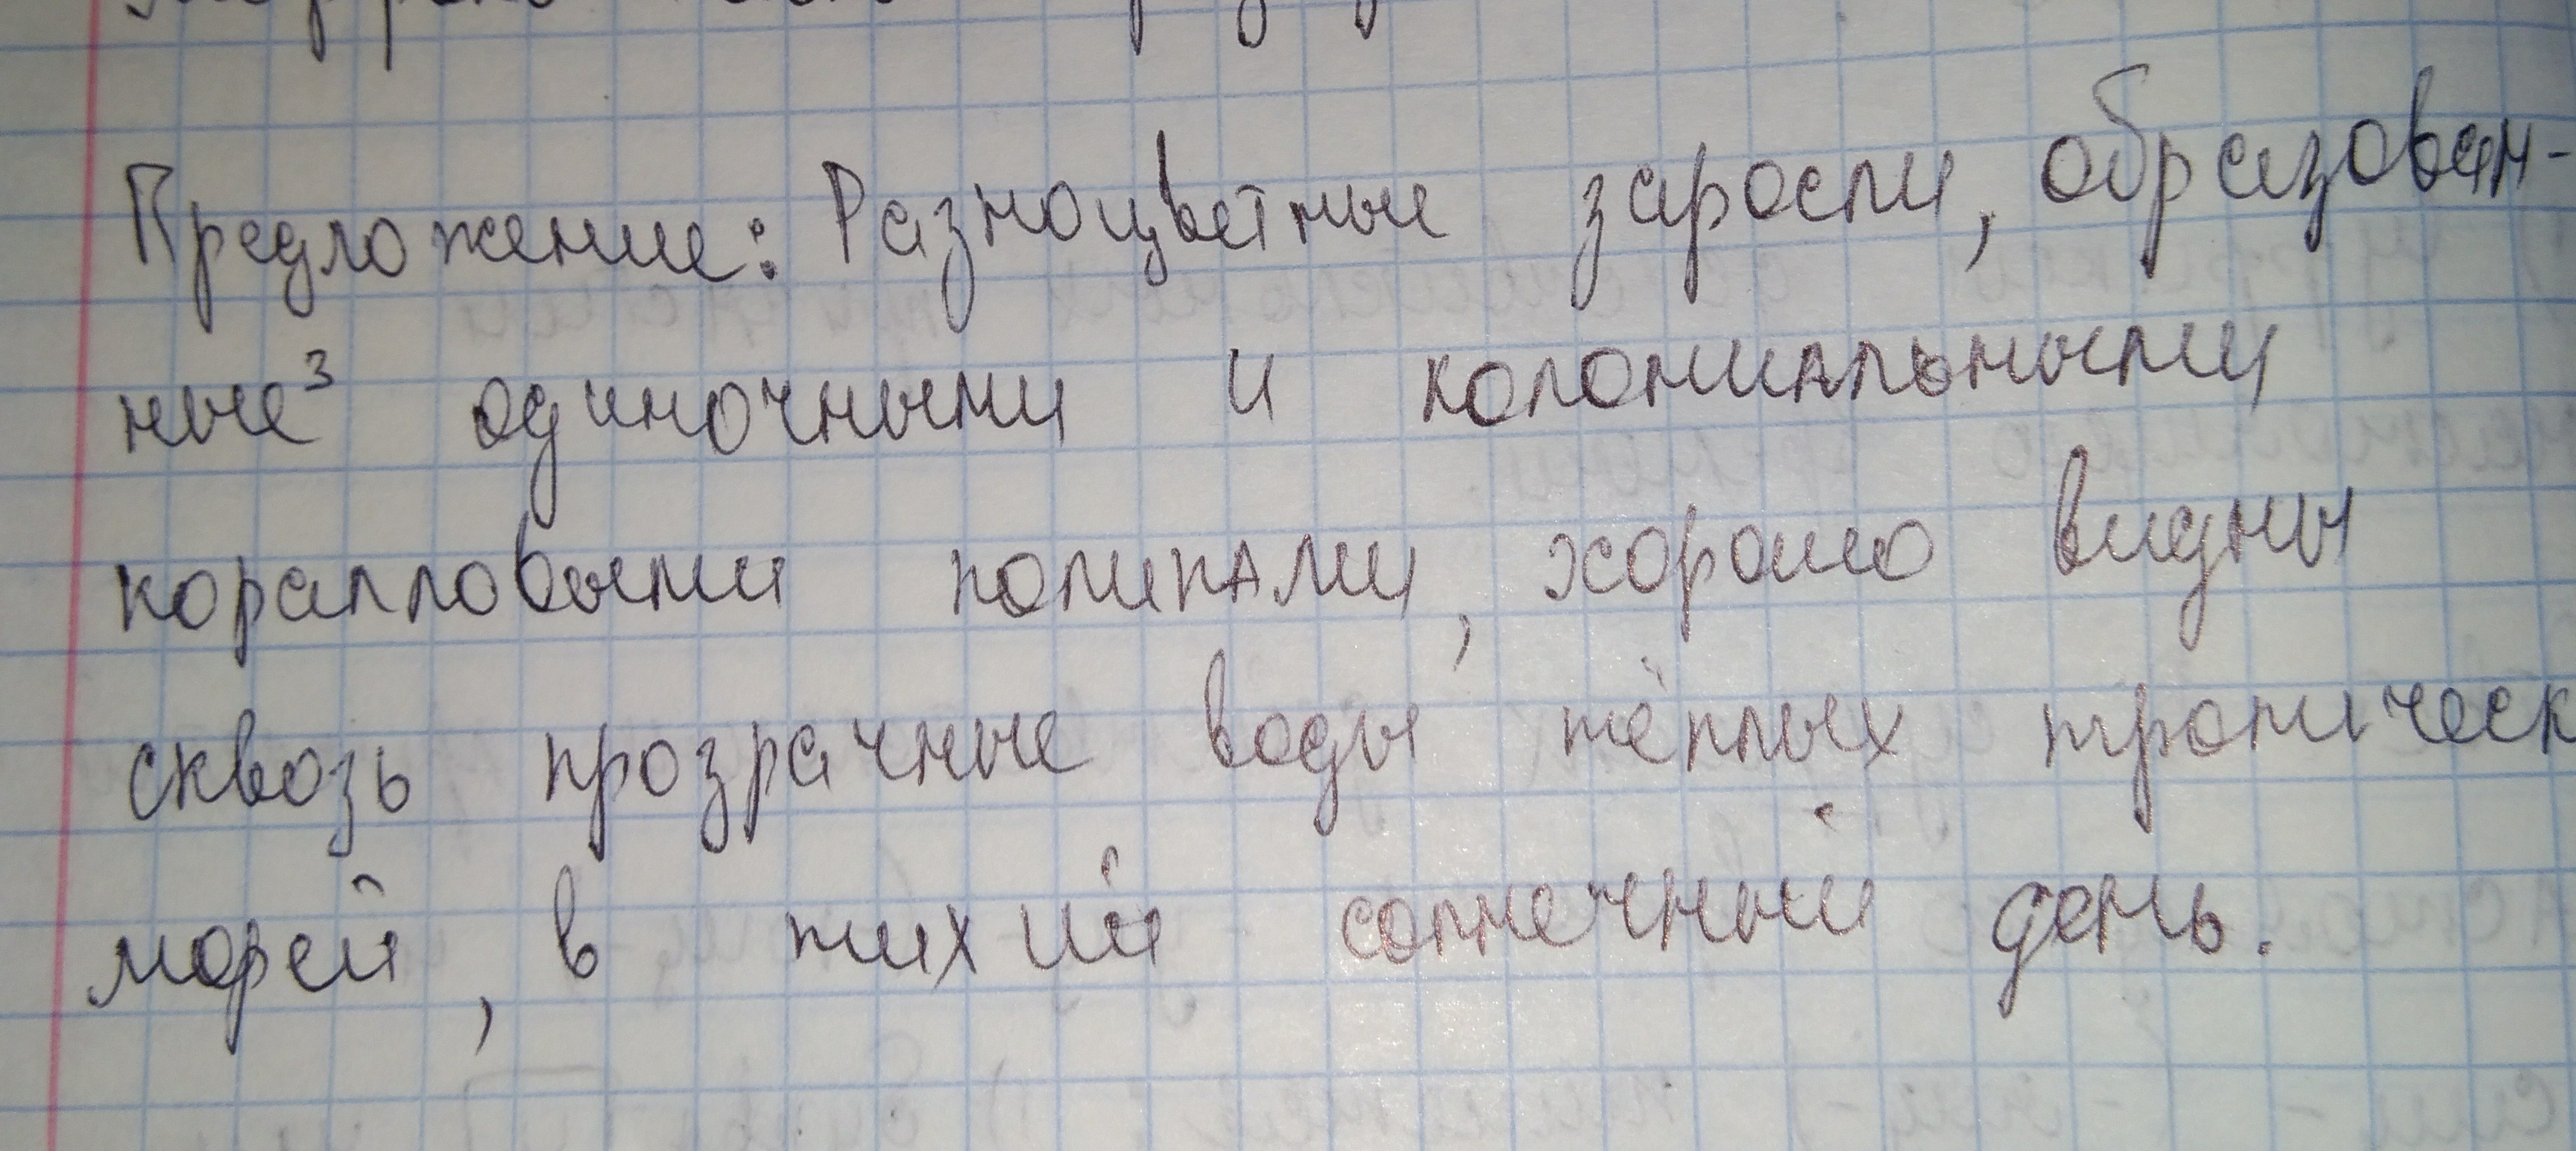 Предложение: Разноцветные заросли, образован-
ные³ одиночными и колониальными
коралловыми полипами, хорошо видны
сквозь прозрачные воды тёплых тропическ
морей, в тихий солнечный день.